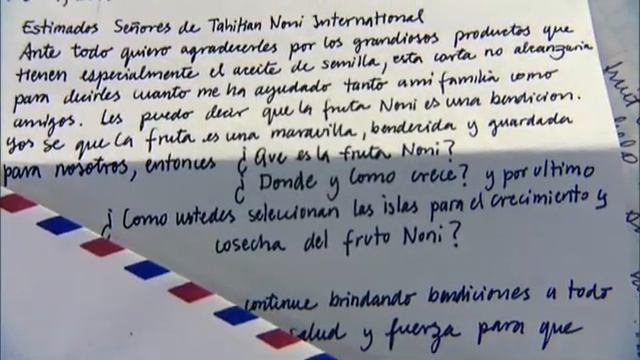 Estimados Señores de Tahitian Noni International
Ante todo quiero agradecerles por los grandiosos productos que
tienen especialmente el aceite de semilla, esta carta no alcanzaria
para decirles cuanto me ha ayudado tanto a mi familia como
amigos. Les puedo decir que la fruta Noni es una bendicion.
Yo se que la fruta es una maravilla, bendecida y guardada
para nosotros, entonces ¿Que es la fruta Noni?
¿Donde y como crece? y por ultimo
¿Como ustedes seleccionan las islas para el crecimiento y
cosecha del fruto Noni?
continue brindando bendiciones a todo
salud y fuerza para que